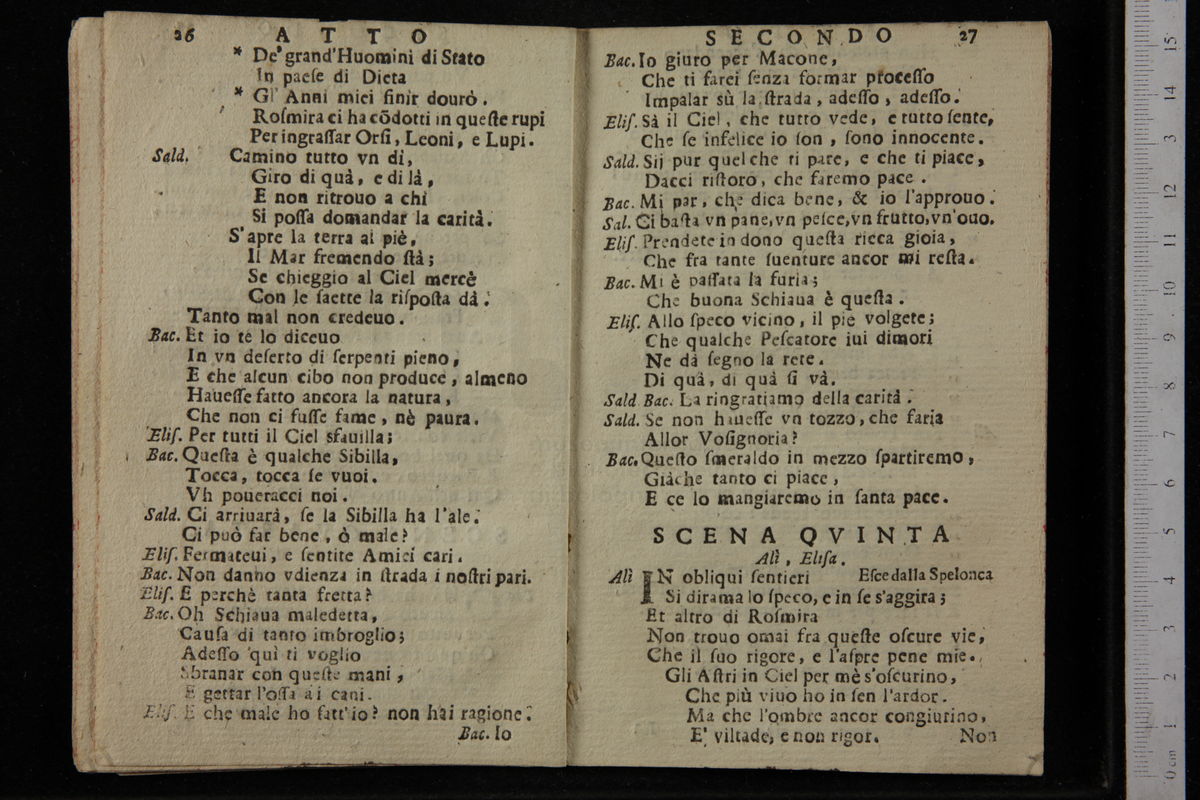 26 ATTO
* De' grand'Huomini di Stato
In paeſe di Dieta
* Gl' Anni miei finir dourò.
Roſmira ci ha cõdotti in queſte rupi
Per ingraſſar Orſi, Leoni, e Lupi.
Sald. Camino tutto vn di,
Giro di quà, e di là,
E non ritrouo a chi
Si poſſa domandar la carità.
S'apre la terra ai piè,
Il Mar fremendo ſtà;
Se chieggio al Ciel mercè
Con le ſaette la riſpoſta dà.
Tanto mal non credeuo.
Bac. Et io te lo diceuo
In vn deſerto di ſerpenti pieno,
E che alcun cibo non produce, almeno
Haueſſe fatto ancora la natura,
Che non ci fuſſe fame, nè paura.
Eliſ. Per tutti il Ciel sfauilla;
Bac. Queſta è qualche Sibilla,
Tocca, tocca ſe vuoi.
Vh poueracci noi.
Sald. Ci arriuarà, ſe la Sibilla ha l'ale.
Ci può far bene, ò male?
Eliſ. Fermateui, e ſentite Amici cari.
Bac. Non danno vdienza in ſtrada i noſtri pari.
Eliſ. E perchè tanta fretta?
Bac. Oh Schiaua maledetta,
Cauſa di tanto imbroglio;
Adeſſo quì ti voglio
Sbranar con queſte mani,
E gettar l'oſſa ai cani.
Eliſ. E che male ho fatt'io? non hai ragione.
Bac. Io
SECONDO 27
Bac. Io giuro per Macone,
Che ti farei ſenza formar proceſſo
Impalar sù la ſtrada, adeſſo, adeſſo.
Eliſ. Sà il Ciel, che tutto vede, e tutto ſente,
Che ſe infelice io ſon, ſono innocente.
Sald. Sij pur quel che ti pare, e che ti piace,
Dacci riſtoro, che faremo pace.
Bac. Mi par, che dica bene, & io l'approuo.
Sal. Ci baſta vn pane, vn peſce, vn frutto, vn'ouo.
Eliſ. Prendete in dono queſta ricca gioia,
Che fra tante ſuenture ancor mi reſta.
Bac. Mi è paſſata la furia;
Che buona Schiaua è queſta.
Eliſ. Allo ſpeco vicino, il piè volgete;
Che qualche Peſcatore iui dimori
Ne dà ſegno la rete.
Di quà, di quà ſi và.
Sald. Bac. La ringratiamo della carità.
Sald. Se non haueſſe vn tozzo, che faria
Allor Voſignoria?
Bac. Queſto ſmeraldo in mezzo ſpartiremo,
Giàche tanto ci piace,
E ce lo mangiaremo in ſanta pace.
SCENA QVINTA
Alì, Eliſa.
Alì IN obliqui ſentieri Eſce dalla Spelonca
Si dirama lo ſpeco, e in ſe s'aggira;
Et altro di Roſmira
Non trouo omai fra queſte oſcure vie,
Che il ſuo rigore, e l'aſpre pene mie.
Gli Aſtri in Ciel per mè s'oſcurino,
Che più viuo ho in ſen l'ardor.
Ma che l'ombre ancor congiurino,
E' viltade, e non rigor. Non
15
14
13
12
11
10
9
8
7
6
5
4
3
2
1
0 cm